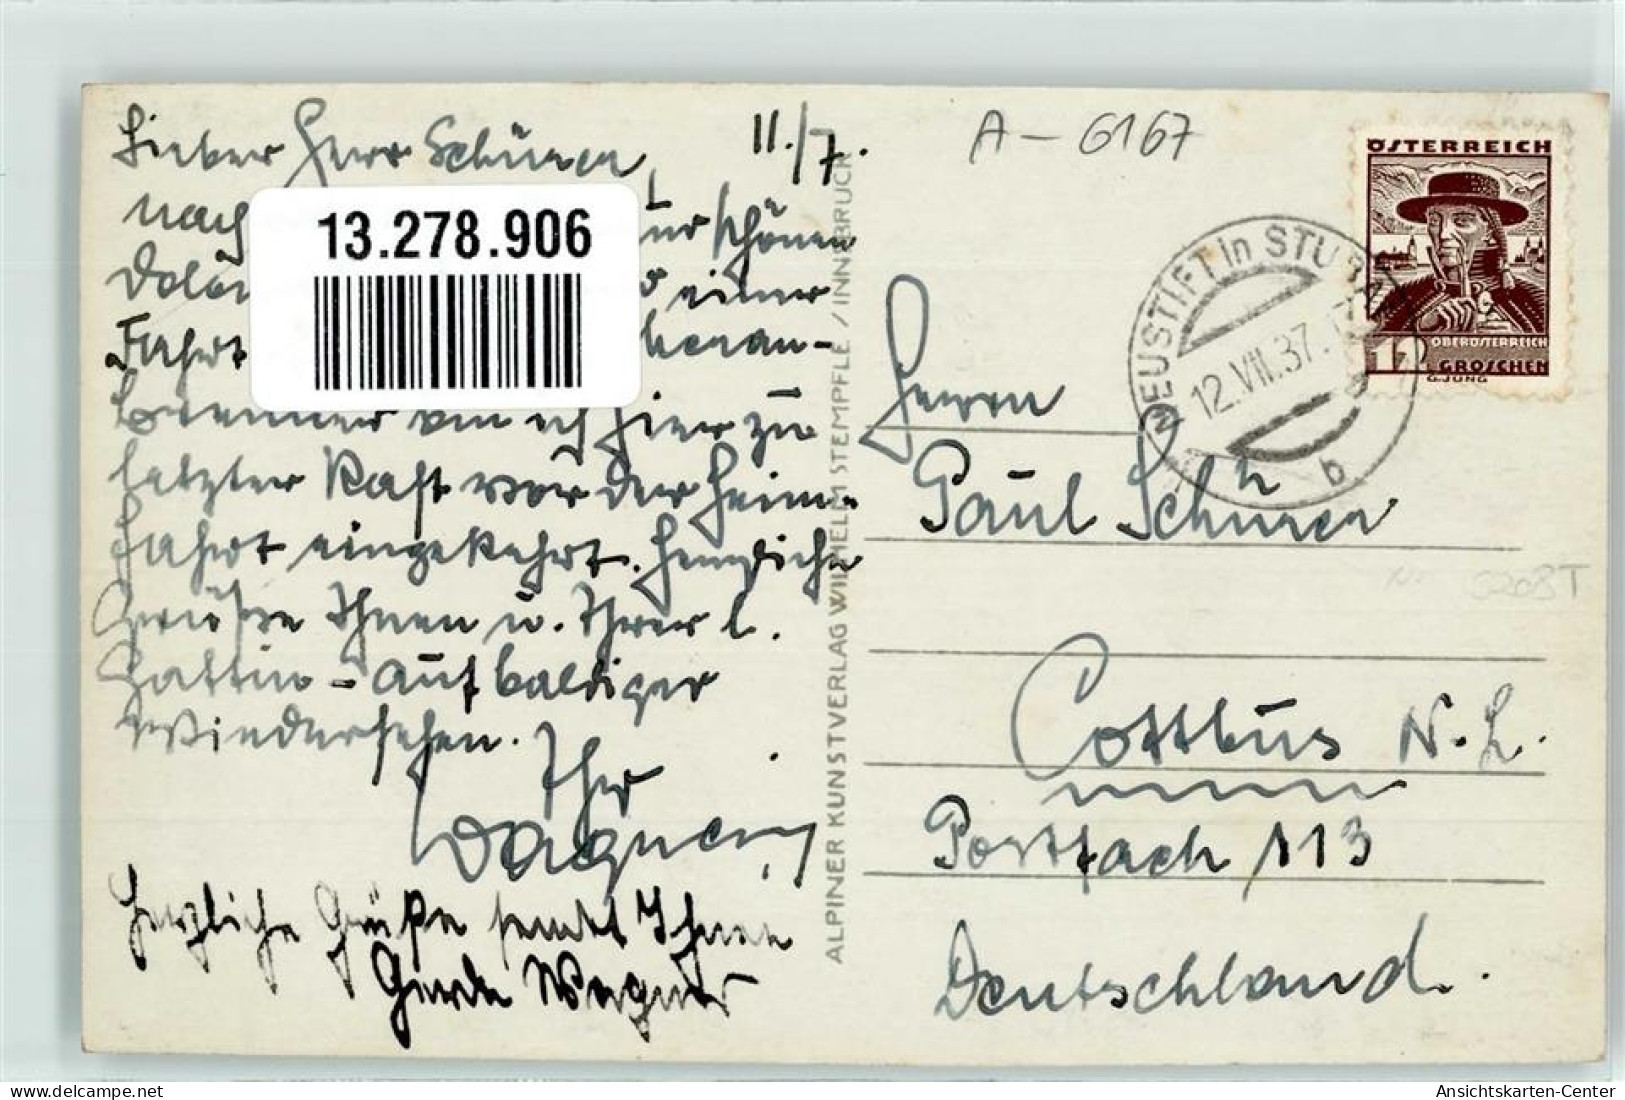 11./7.
Lieber Herr Schürer,
nach
13.278.906
schönen
einer
Fahrt
Brenner bin ich hier zu
letzter Rast vor der Heim-
fahrt eingekehrt. Herzliche
Grüsse Ihnen u. Ihrer l.
Gattin - Auf baldiges
Wiedersehen.
Ihr
Herzliche Grüße sendet Ihnen
Gerda Wagner
ALPINER KUNSTVERLAG WILHELM STEMPFLE / INNSBRUCK
A - 6167
ÖSTERREICH
OBERÖSTERREICH
12 GROSCHEN
G.JUNG
NEUSTIFT in STUBAI
12.VII.37.
b
Herrn
Paul Schürer
Cottbus N.L.
Postfach 113
Deutschland.
Ansichtskarten-Center
delcampe.net